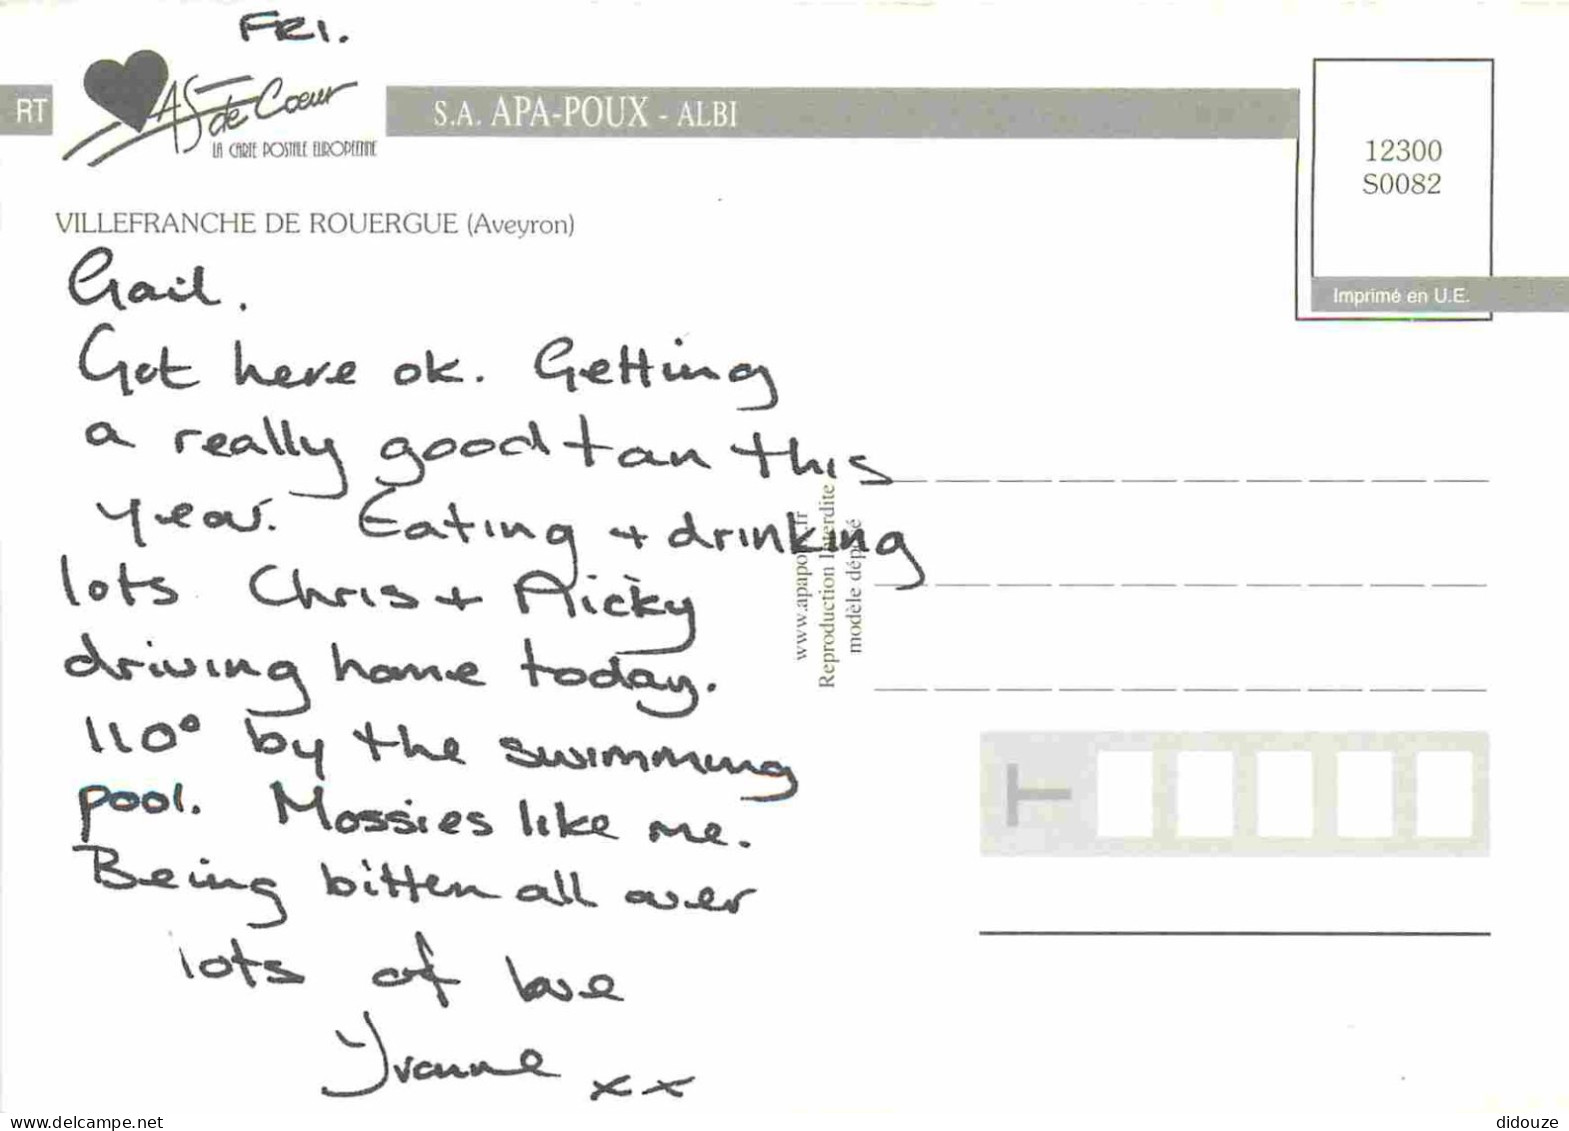 FRI.
As de Cœur
LA CARTE POSTALE EUROPÉENNE
RT
S.A. APA-POUX - ALBI
12300
S0082
Imprimé en U.E.
VILLEFRANCHE DE ROUERGUE (Aveyron)
Gail.
Got here ok. Getting
a really good tan this
year. Eating + drinking
lots Chris + Ricky
driving home today.
110° by the swimming
pool. Mossies like me.
Being bitten all over
lots of love
Yvonne xx
Reproduction Interdite
modèle déposé
T
delcampe.net
didouze